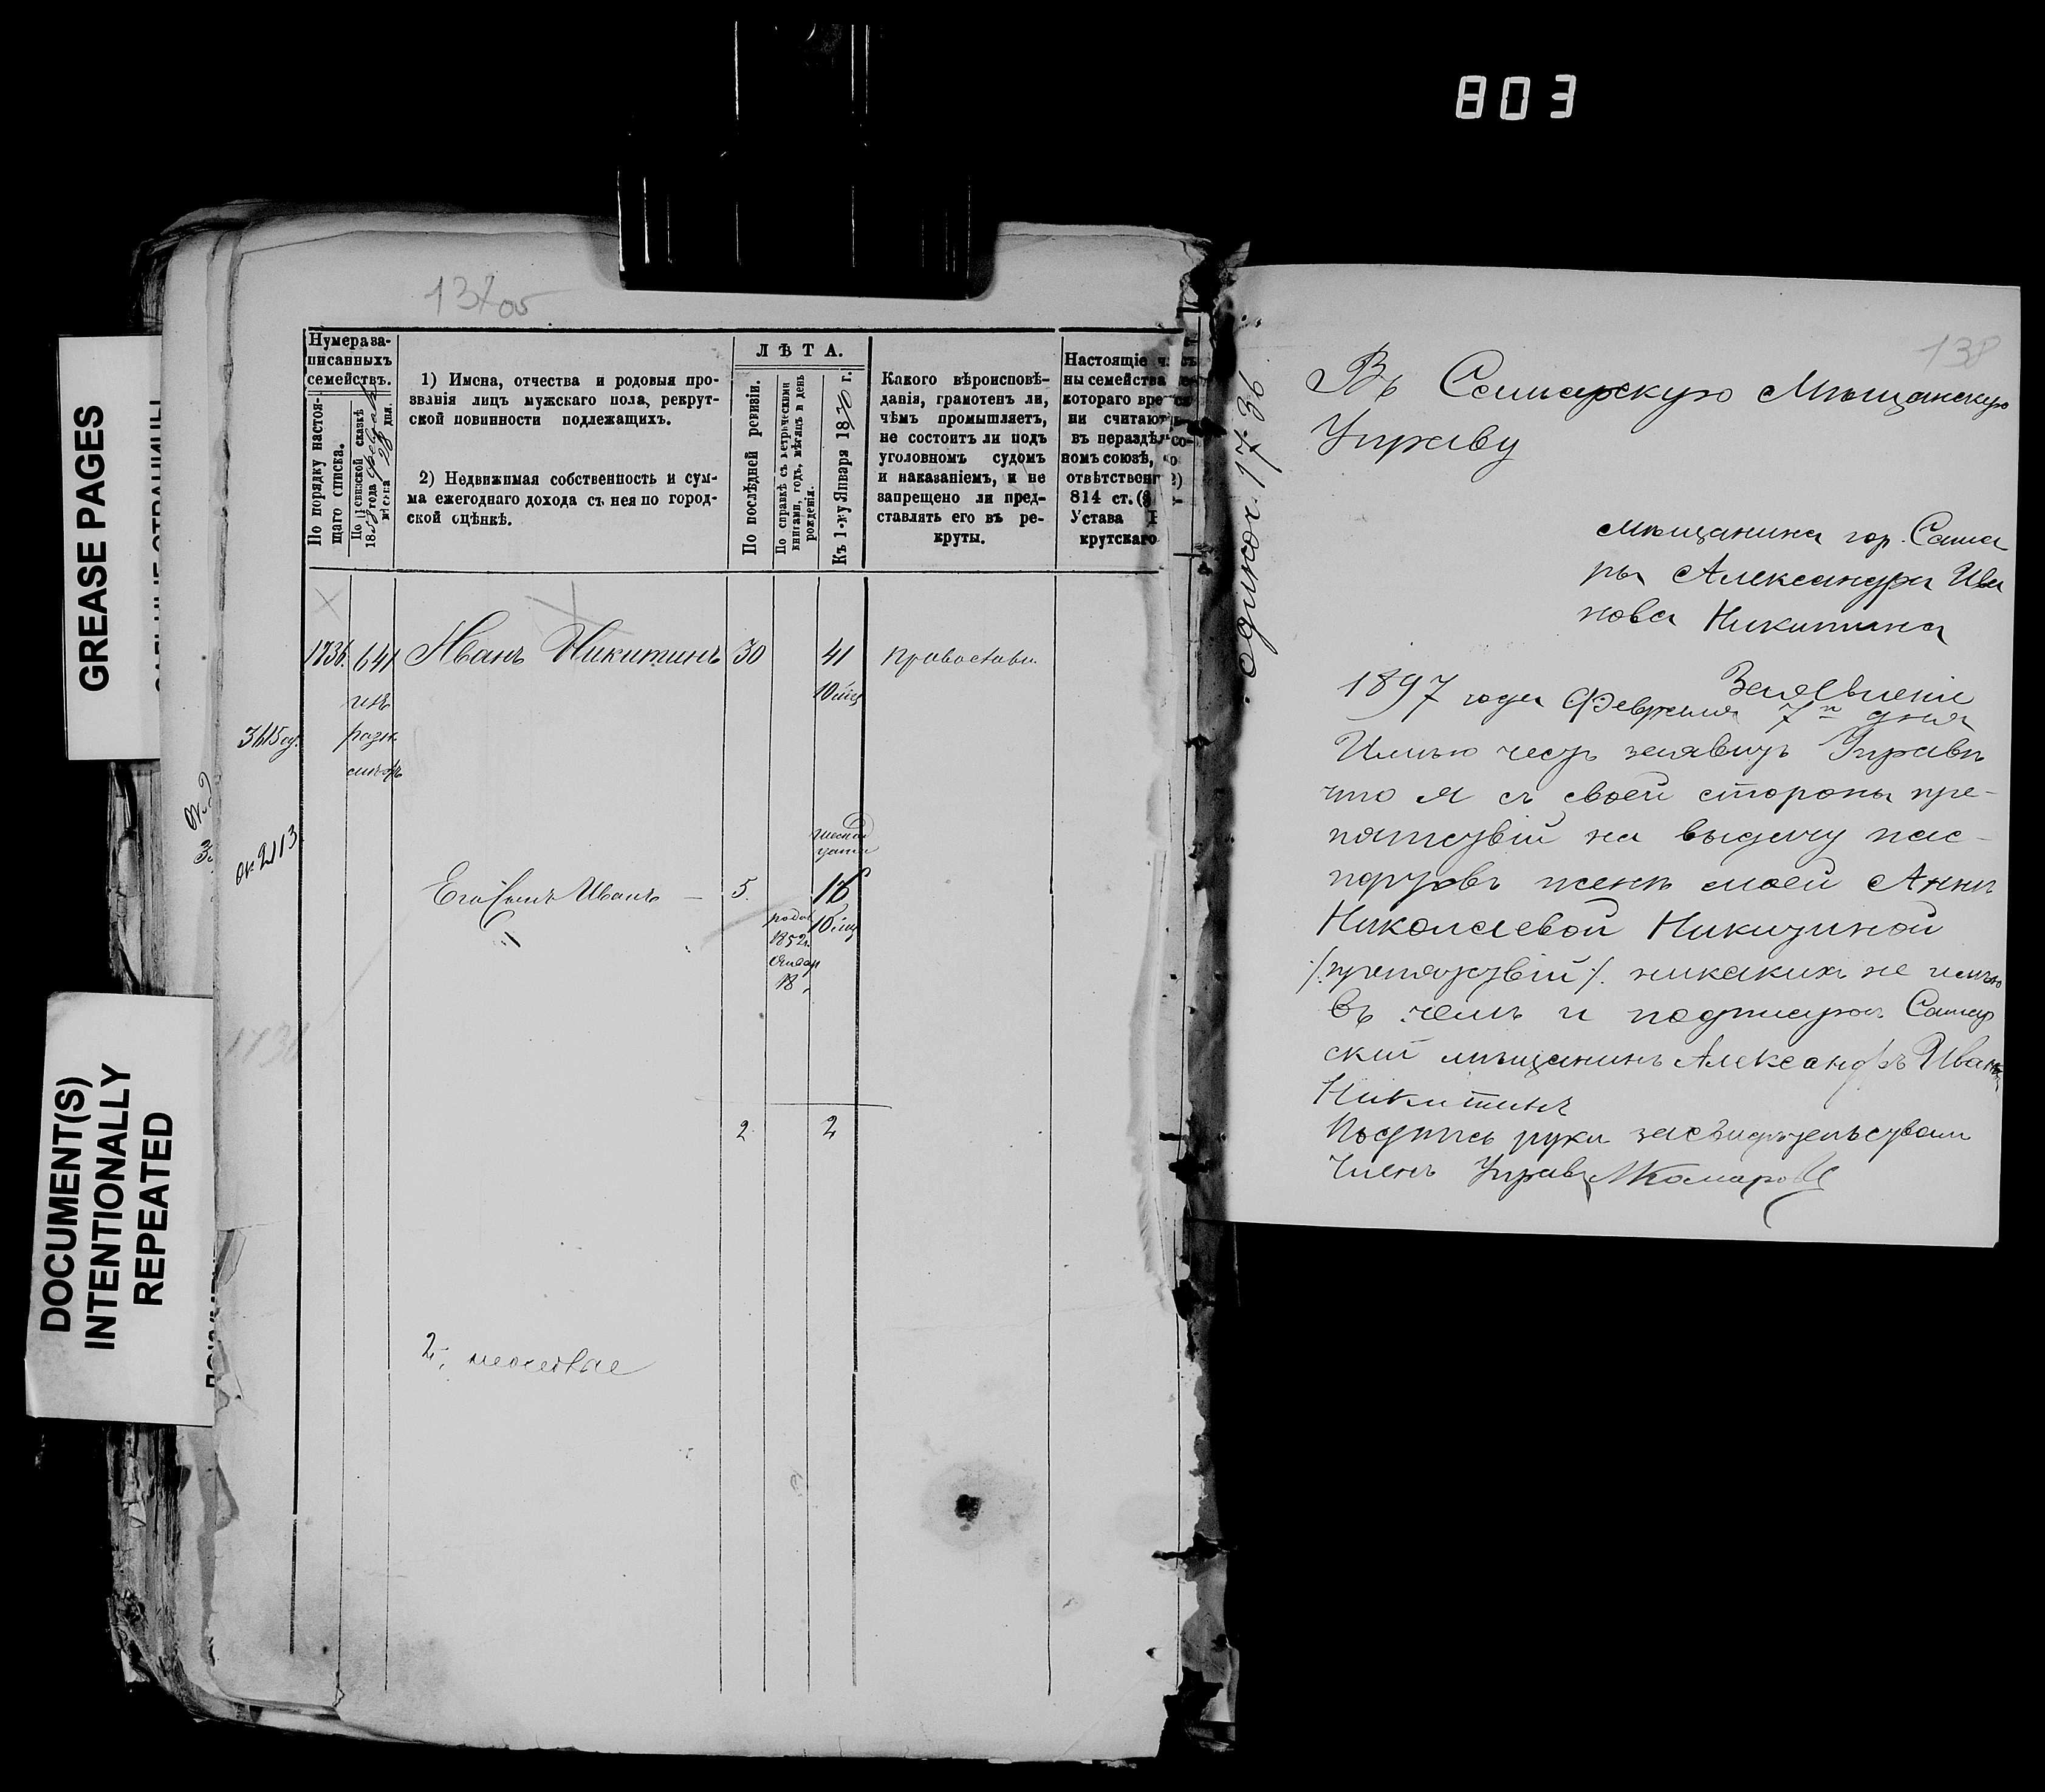 803
GREASE PAGES
DOCUMENT(S)
INTENTIONALLY
REPEATED
137об
Нумера за-
писанныхъ
семействъ.
По порядку настоя-
щаго списка.
По ревизской сказкѣ
18 года
мѣсяца 28 дня.
1) Имена, отчества и родовыя про-
званія лицъ мужскаго пола, рекрут-
ской повинности подлежащихъ.
2) Недвижимая собственность и сум-
ма ежегоднаго дохода съ нея по город-
ской оцѣнкѣ.
ЛѢТА.
По послѣдней ревизіи.
По справкѣ съ метрическими
книгами, годъ, мѣсяцъ и день
рожденія.
Къ 1-му Января 1870 г.
Какого вѣроисповѣ-
данія, грамотенъ ли,
чѣмъ промышляетъ,
не состоитъ ли подъ
уголовномъ судомъ
и наказаніемъ, и не
запрещено ли пред-
ставлять его въ ре-
круты.
Настоящіе
ны семейства
котораго вре
ни считаю
въ нераздѣ
номъ союзѣ,
отвѣтствен
814 ст.
Устава
крутскаго
1736. 641 Иванъ Никитинъ 30 41 Православн.
10 мѣц
изъ
разн
Его Сынъ Иванъ — 5. 16
родов 10 мѣц
1852.
Январ
18
2 2
2,
одинок. 1736
138
Въ Самарскую Мѣщанскую
Управу
мѣщанина гор. Сама
ры Александра Ива
нова Никитина
Заявленіе
1897 года Февраля 7го дня
Имѣю честь заявить Управѣ
что я съ своей стороны пре-
пятствій на выдачу пас-
портовъ женѣ моей Аннѣ
Николаевой Никитиной
/.препятствій/. никакихъ не имѣю
въ чемъ и подписуюсь Самар
скій мѣщанинъ Александръ Иванъ
Никитинъ
Подпись руки засвидѣтельствовалъ
Членъ Управы МКомаровъ